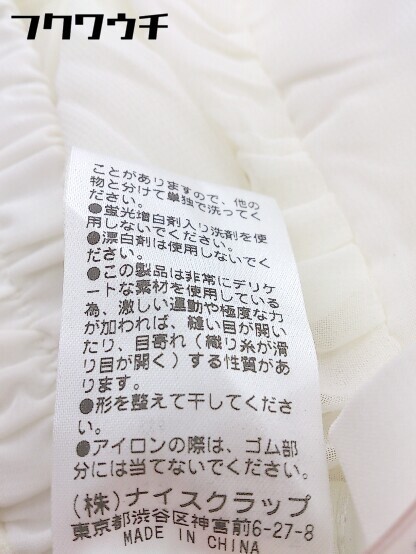 フクワウチ
ことがありますので、他の
物と分けて単独で洗ってく
ださい。
●蛍光増白剤入り洗剤を使
用しないでください。
●漂白剤は使用しないでく
ださい。
●この製品は非常にデリケ
ートな素材を使用している
為、激しい運動や極度な力
が加われば、縫い目が開い
たり、目寄れ（織り糸が滑
り目が開く）する性質があ
ります。
●形を整えて干してくださ
い。
●アイロンの際は、ゴム部
分には当てないでください。
（株）ナイスクラップ
東京都渋谷区神宮前6-27-8
MADE IN CHINA